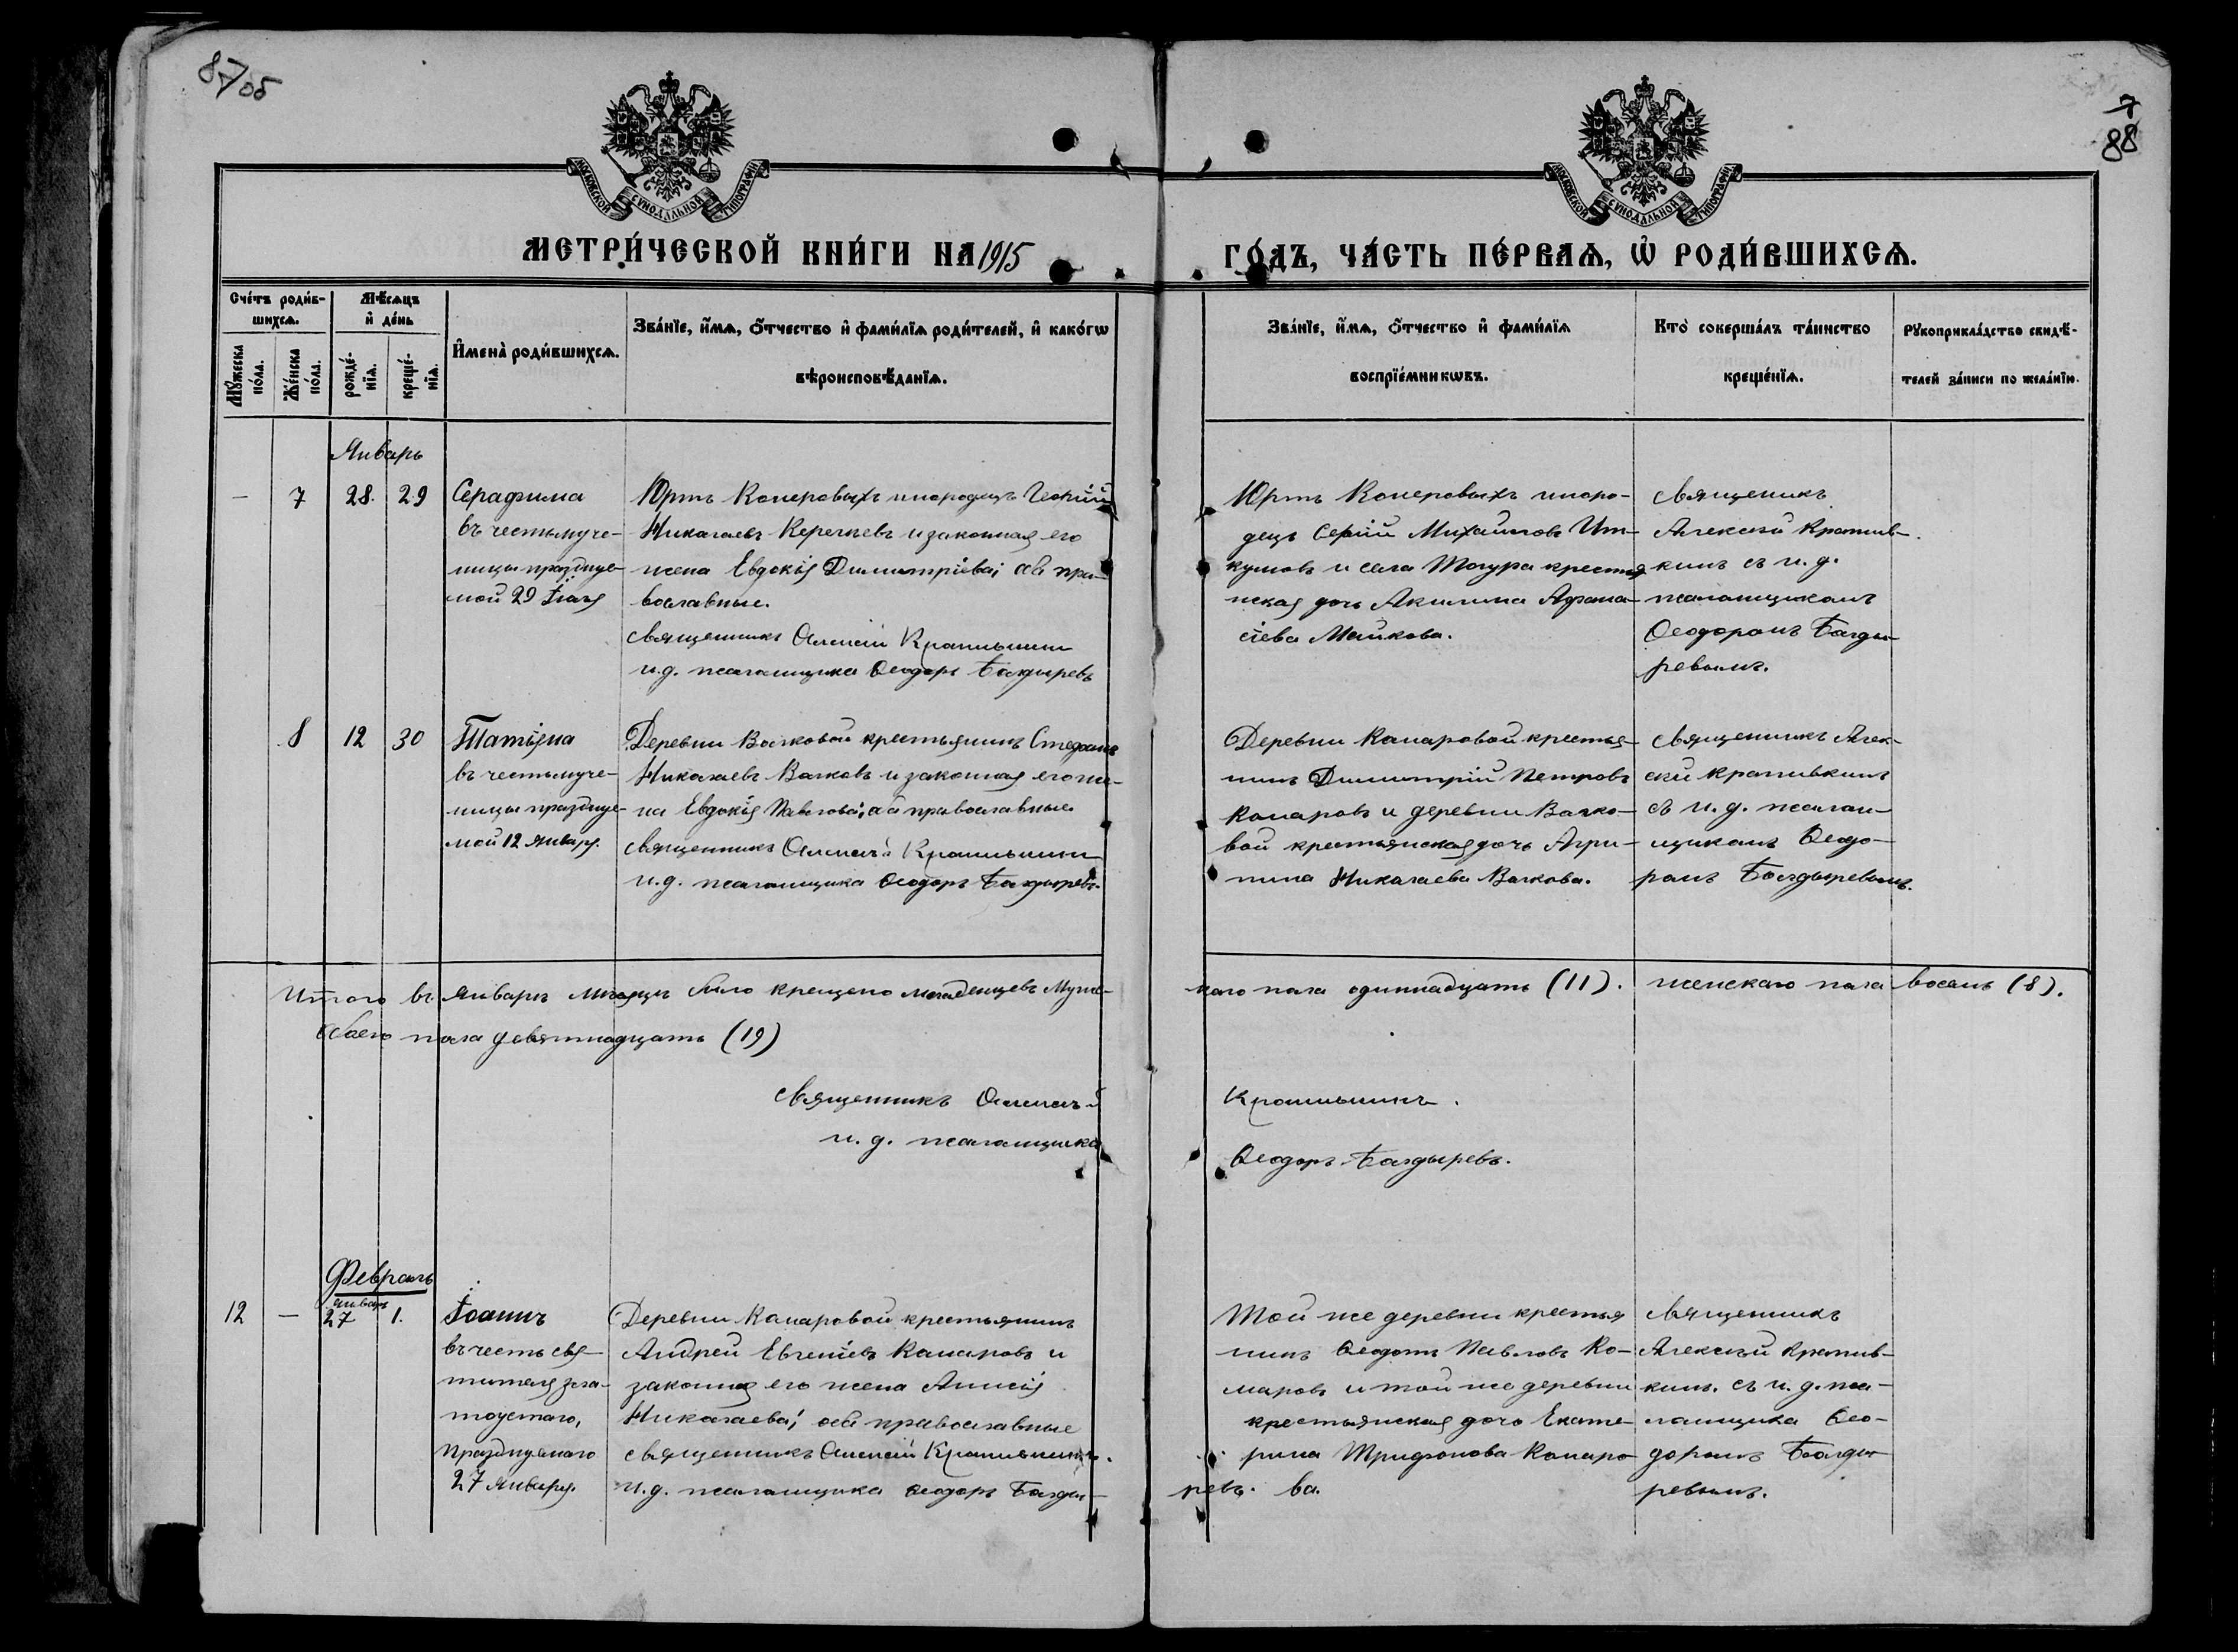 87об
7
88
МОСКОВСКОЙ СУНОДАЛЬНОЙ ТИПОГРАФІИ
МОСКОВСКОЙ СУНОДАЛЬНОЙ ТИПОГРАФІИ
МЕТРИ́ЧЕСКОЙ КНИ́ГИ НА 1915
ГО́ДЪ, ЧА́СТЬ ПЕ́РВАѦ, Ѡ҆ РОДИ́ВШИХСѦ.
Сче́тъ роди́в-
шихсѧ.
Мѣ́сѧцъ
и҆ де́нь
Мꙋ́жеска
по́ла.
Же́нска
по́ла.
рожде́-
нїѧ.
креще́-
нїѧ.
И҆мена̀ роди́вшихсѧ.
Зва́нїе, и҆́мѧ, ѻ҆́тчество и҆ фами́лїѧ роди́телей, и҆ како́гѡ
вѣроисповѣ́данїѧ.
Зва́нїе, и҆́мѧ, ѻ҆́тчество и҆ фами́лїѧ
воспрїе́мникѡвъ.
Кто̀ соверша́лъ та́инство
креще́нїѧ.
Рꙋкоприкла́дство свидѣ́-
телей за́писи по жела́нїю.
Январь
— 7 28. 29
Серафима
въ честь муче-
ницы празднуе-
мой 29 Іюля
Николаевъ и законная его
жена Евдокія Димитріева; оба пра-
вославные.
священникъ Алексій Крапивкинъ
и.д. псаломщика Ѳеодоръ Болдыревъ
Юртъ иноро-
децъ Сергій Михаиловъ
и села Тогура крестья
нская дочь Акилина Афана-
сіева Майкова.
священникъ
Алексѣй Крапив-
кинъ съ и. д.
псаломщикомъ
Ѳеодоромъ Болды-
ревымъ.
8 12 30
Татіяна
въ честь муче-
ницы празднуе-
мой 12 января.
Деревни Волковой крестьянинъ Стефанъ
Николаевъ Волковъ и законная его же-
на Евдокія Павлова; оба православные
священникъ Алексѣй Крапивкинъ
и.д. псаломщика Ѳеодоръ Болдыревъ.
Деревни Комаровой крестья-
нинъ Димитрій Петровъ
Комаровъ и деревни Волко-
вой крестьянская дочь Агри-
пина Николаева Волкова.
священникъ Алек-
сѣй Крапивкинъ
съ и. д. псалом-
щикомъ Ѳеодо-
ромъ Болдыревымъ.
Итого въ январѣ мѣсяцѣ было крещено младенцевъ Муже-
скаго пола одиннадцать (11). женскаго пола восемь (8).
обоего пола девятнадцать (19)
Священникъ Алексѣй Крапивкинъ.
и. д. псаломщика Ѳеодоръ Болдыревъ.
Февраль
январь
12 — 27 1.
Іоаннъ
въ честь свя-
тителя Зла-
тоустаго,
празднуемаго
27 января.
Деревни Комаровой крестьянинъ
Андрей Евгеніевъ Комаровъ и
законная его жена Анисія
Николаева; оба православные
священникъ Алексій Крапивкинъ.
и.д. псаломщика Ѳеодоръ Болды-
ревъ.
Той же деревни крестья
нинъ Ѳеодотъ Павловъ Ко-
маровъ и той же деревни
крестьянская дочь Екате-
рина Трифонова Комаро
ва.
священникъ
Алексѣй Крапив-
кинъ. съ и. д. пса-
ломщика Ѳео-
доромъ Болды-
ревымъ.